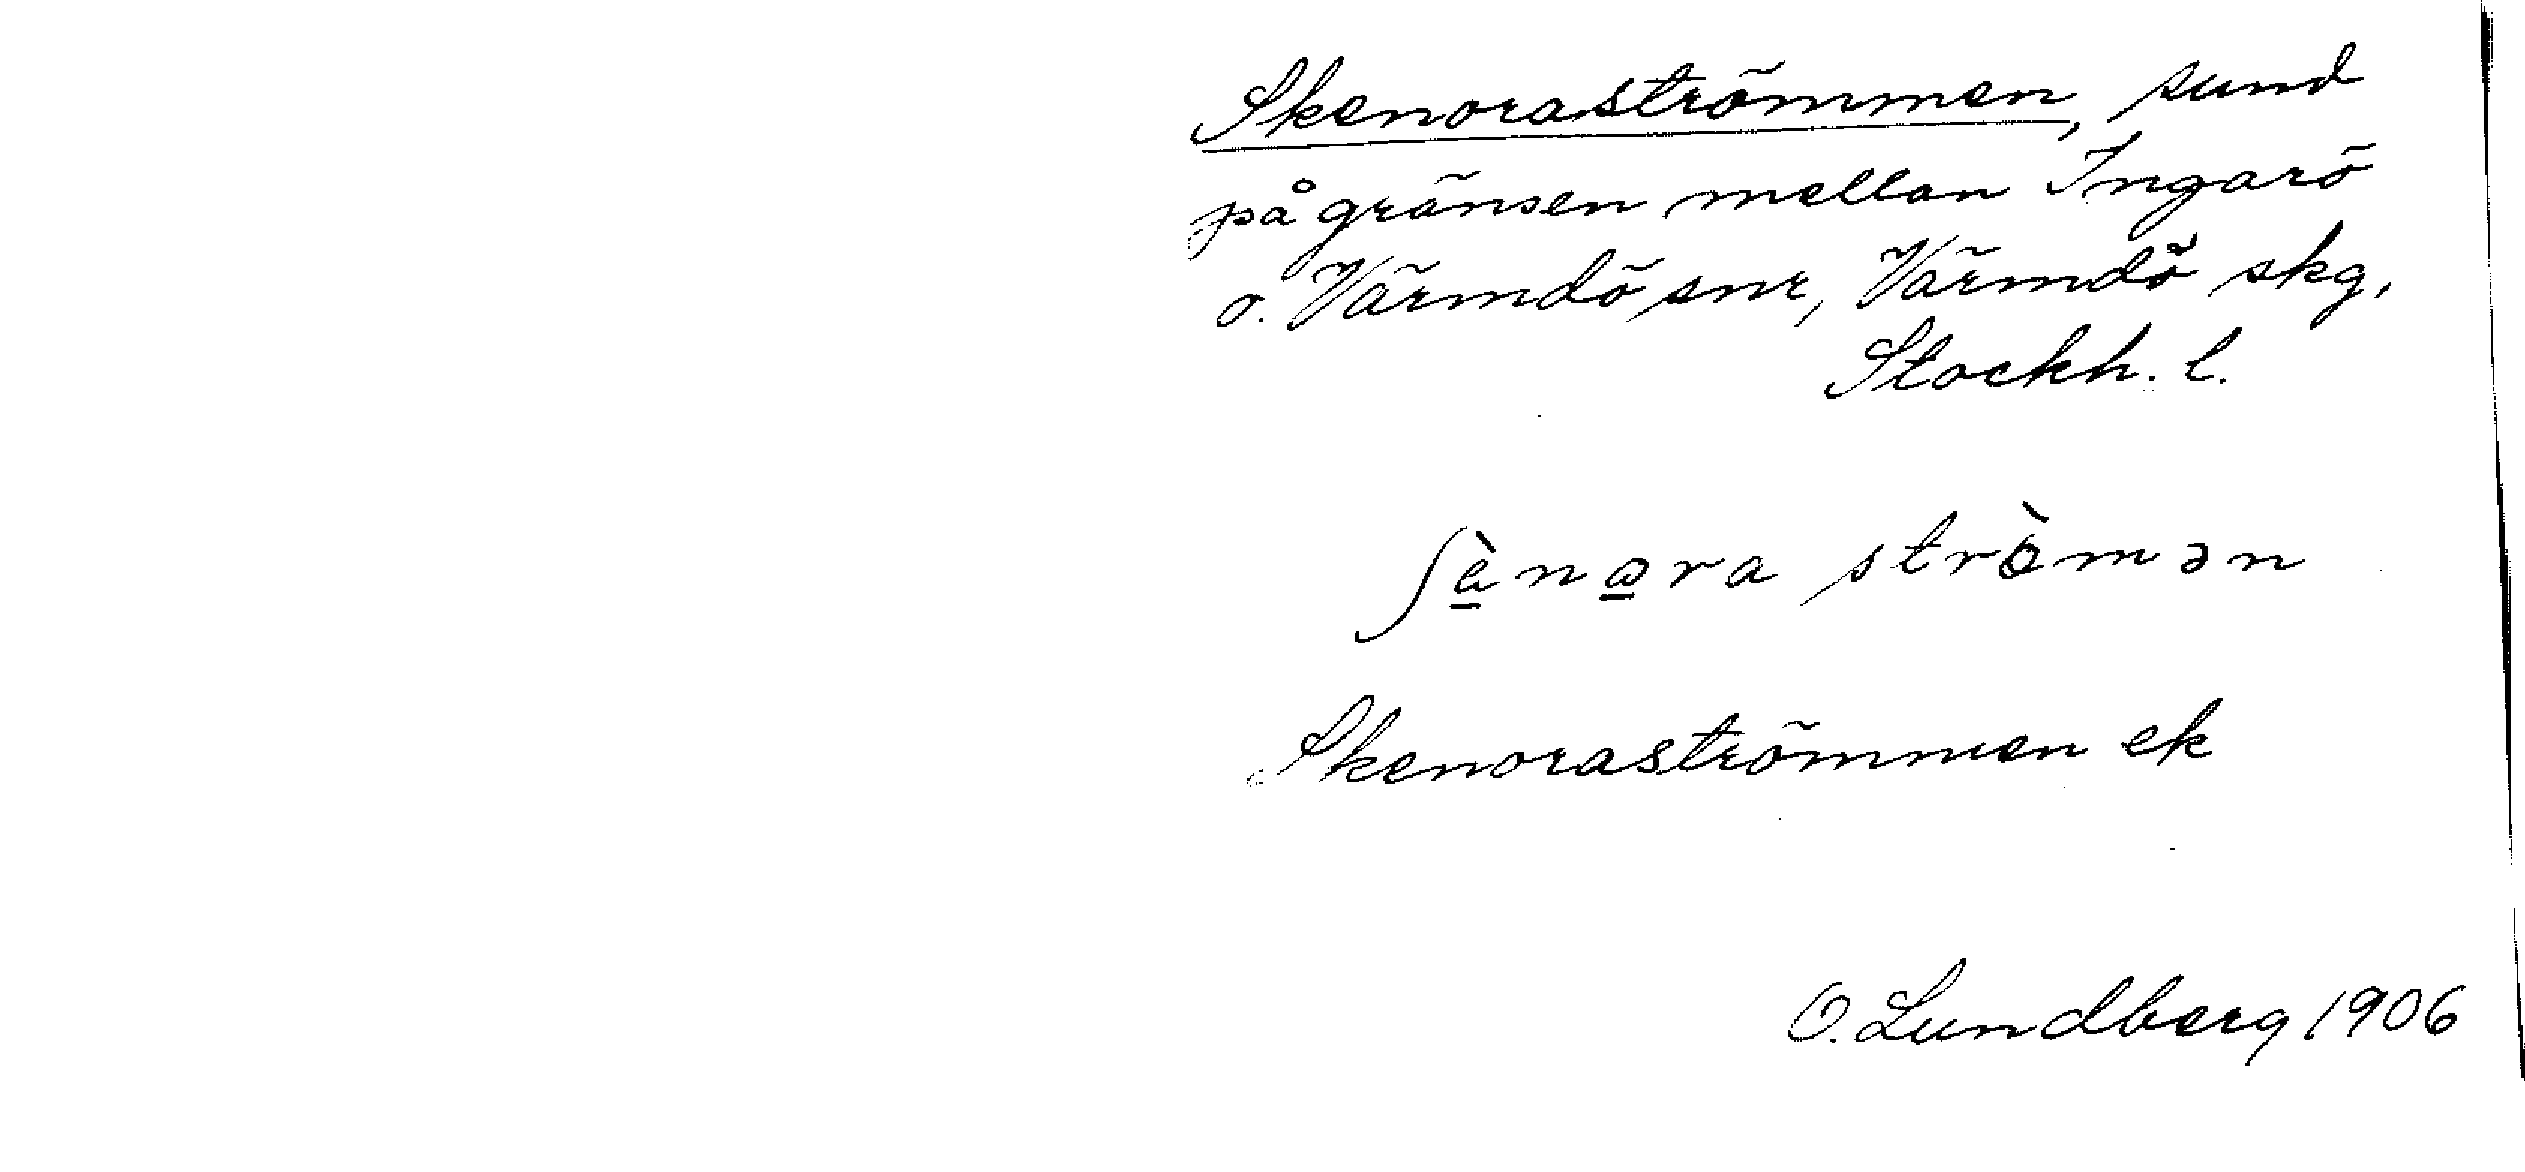 Skenoraströmmen, sund
på gränsen mellan Ingarö
o. Värmdö snr, Värmdö skg,
Stockh. l.
ʃὲ̱nω̱ra strὼmən
Skenoraströmmen ek
O. Lundberg 1906